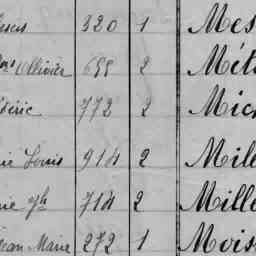 320 1 Mes
Ollivier 658 2 Mét
déric 772 2 Mic
Louis 914 2 Mile
714 2 Mille
Jean Marie 272 1 Mois